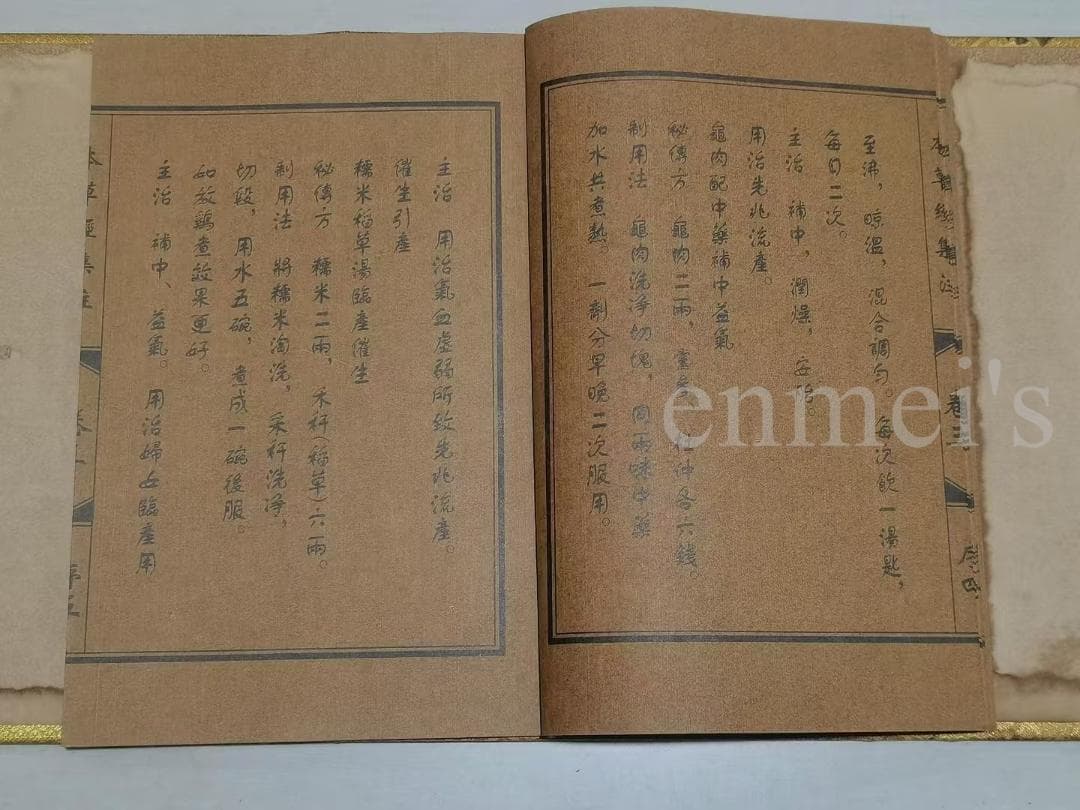 至沸，晾溫，混合調勻。每次飲一湯匙，
每日二次。
主治 補中，潤燥，安胎。
用治先兆流產。
龜肉配中藥補中益氣
秘傳方 龜肉二兩，童參 杜仲各六錢。
制用法 龜肉洗淨切塊，同兩味中藥
加水共煮熟。一劑分早晚二次服用。
主治 用治氣血虛弱所致先兆流產。
催生引產
糯米稻草湯臨產催生
秘傳方 糯米二兩，禾秆(稻草)六兩。
制用法 將糯米淘洗，禾秆洗淨，
切段，用水五碗，煮成一碗後服。
如放鷄煮效果更好。
主治 補中、益氣。用治婦女臨產用
本草經集注
卷三
enmei's